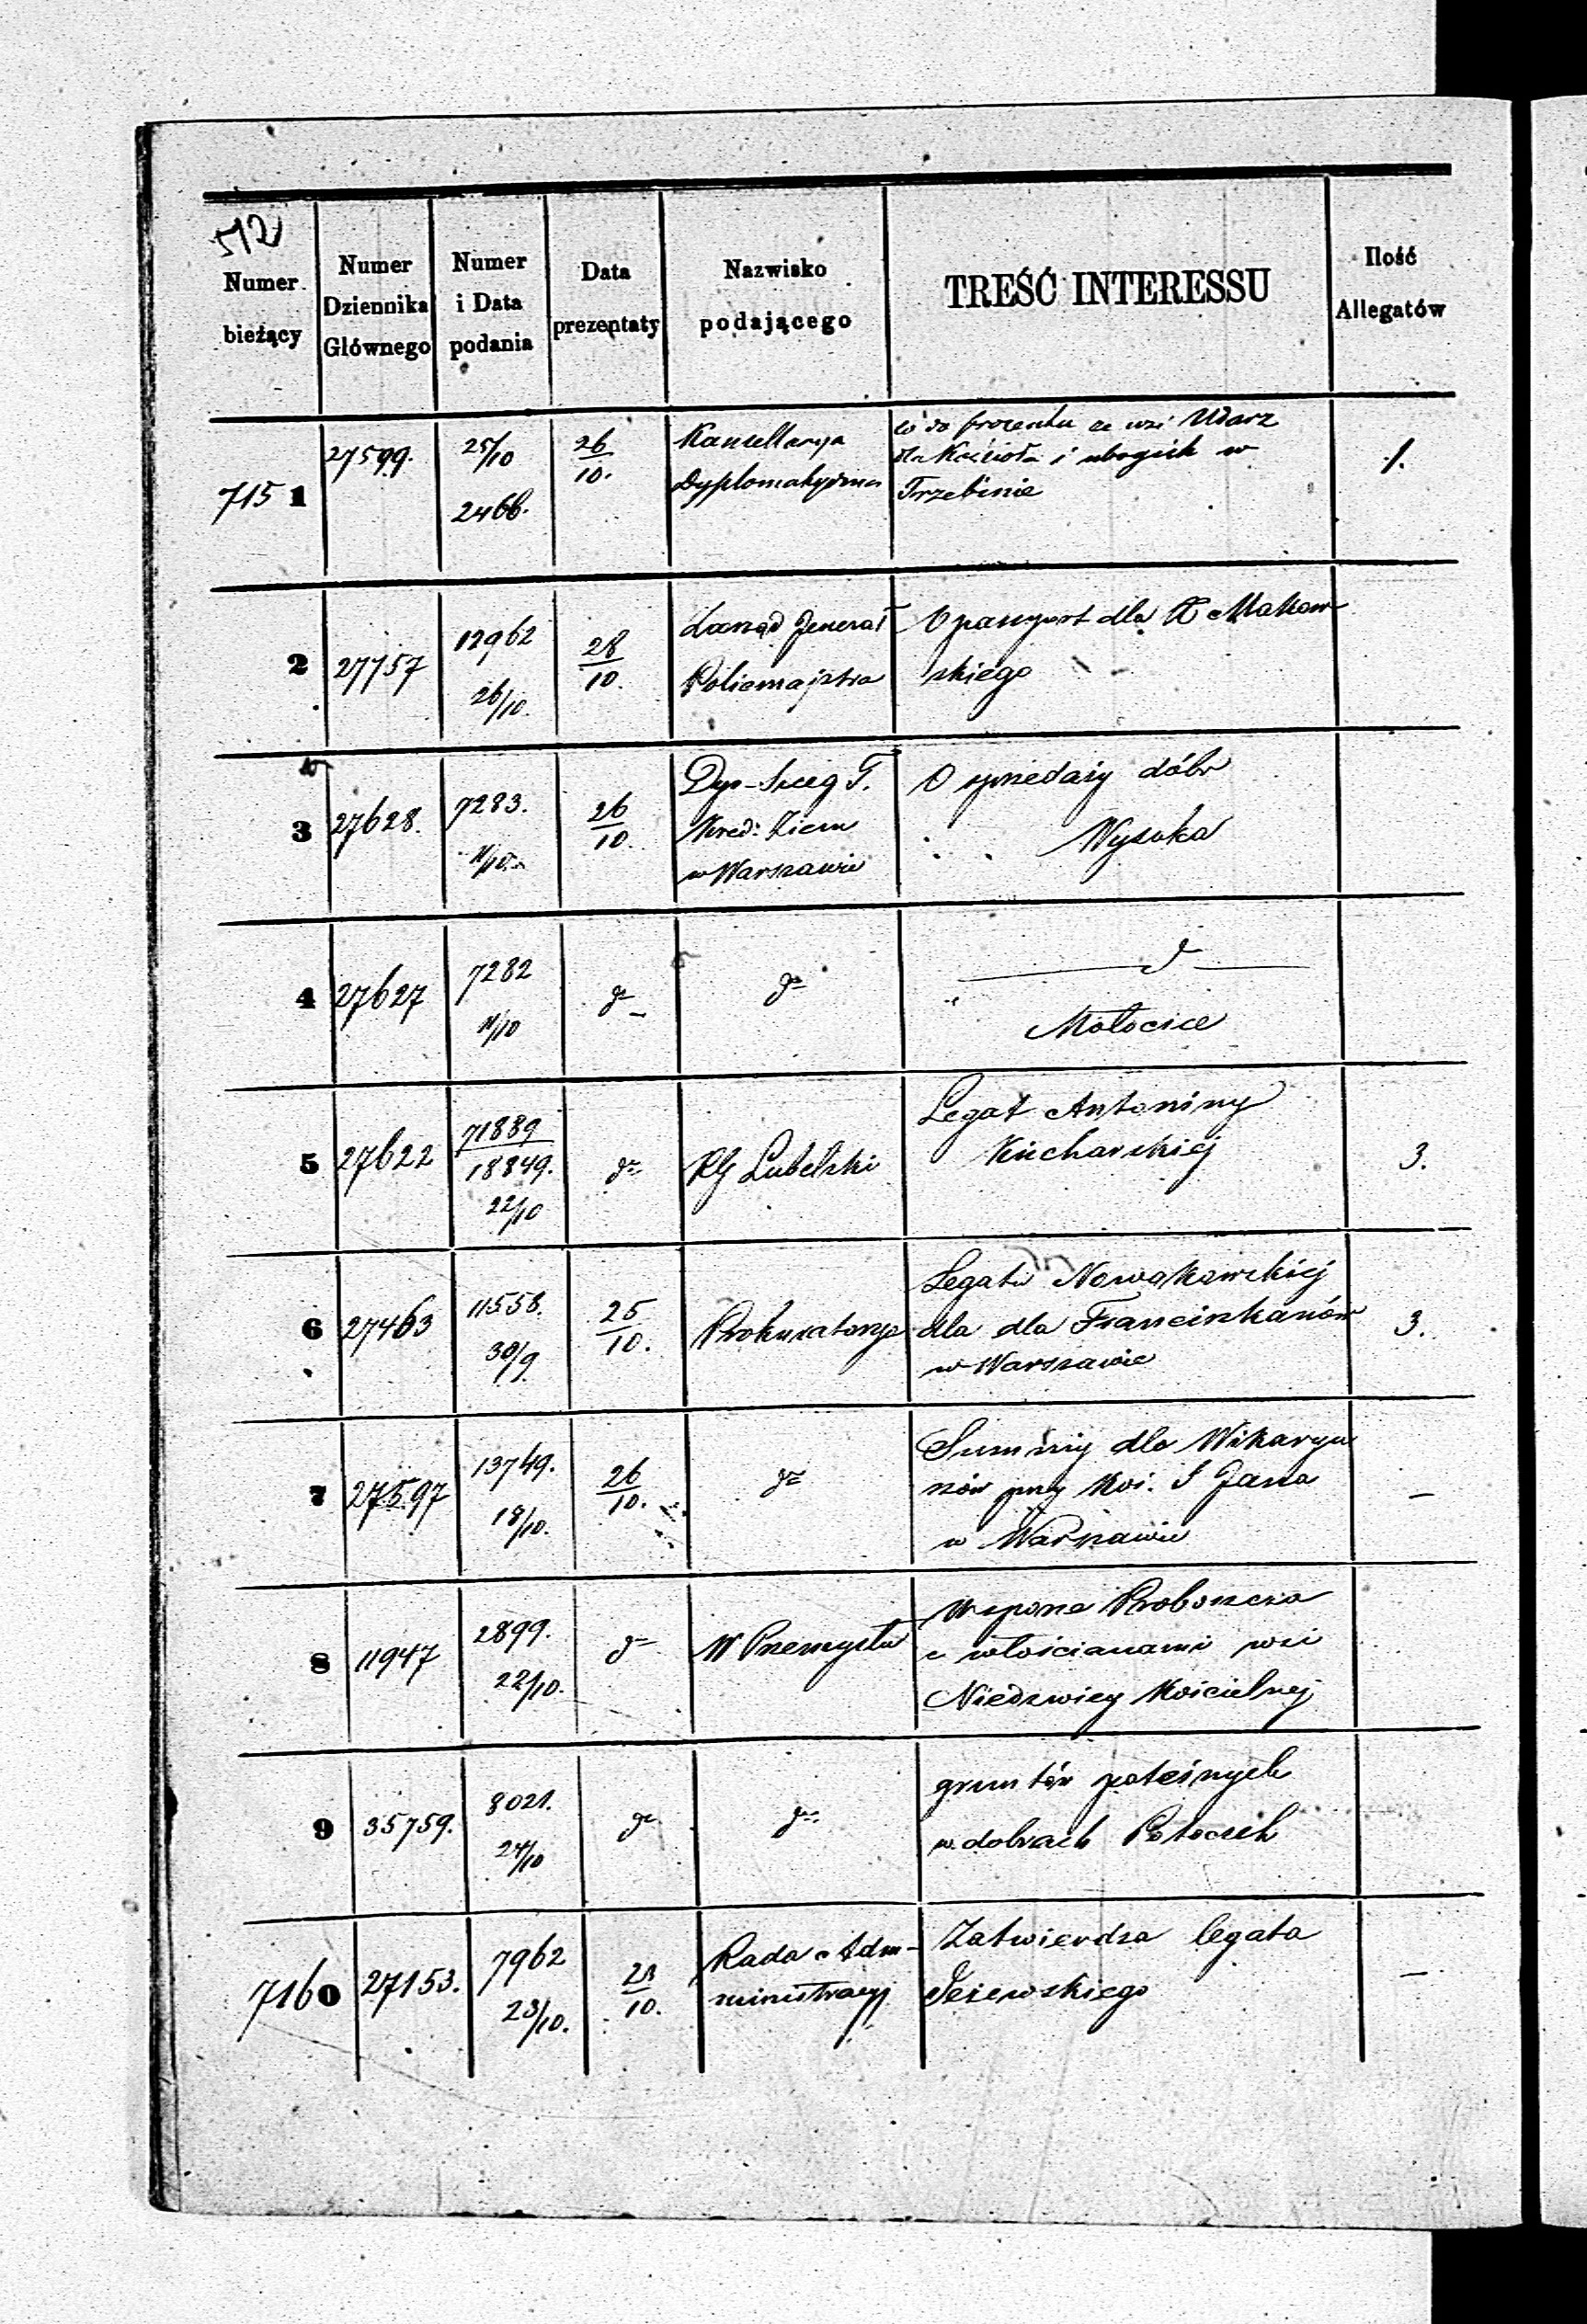 572
Numer bieżący
Numer Dziennika Głównego
Numer i Data podania
Data prezentaty
Nazwisko podającego
TREŚĆ INTERESSU
Ilość Allegatów
7151 27599. 25/10 2466. 26/10. Kancellarya Dyplomatyczna
co do procentu ze wsi Udorz
dla Kościoła i ubogich w
Trzebinie
1.
2 27757 12962 26/10. 28/10. Zarząd Jenerał Policmajstra
O paszport dla X Makow-
skiego
3 27628. 7283. 11/10. 26/10. Dyr. Szczeg T. Kred: Ziem w Warszawie
O sprzedaży dóbr
Wysoka
4 27627 7282 11/10 do do
do
Mołocice
5 27622 71889/18849. 22/10 do RG Lubelski
Legat Antoniny
Kucharskiej
3.
6 27463 11558. 30/9 25/10. Prokuratorya
Legatu Nowakowskiej
dla dla Franciszkanów
w Warszawie
3.
7 27597 13749. 18/10. 26/10. do
Summy dla Wikaryu
szów przy Koś. S Jana
w Warszawie
—
8 11947 2899. 22/10. do W Przemysłu
W sporze Proboszcza
z włościanami wsi
Niedrzwicy Kościelnej
9 35759. 8021. 24/10 do do
gruntów poleśnych
w dobrach Potoczek
7160 27153. 7962 23/10. 21/10. Rada Adm-ministracyj
Zatwierdza legata
Jeżewskiego
—